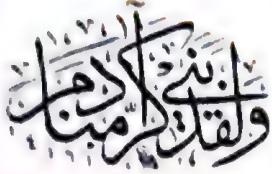 ولقد كرمنا بني آدم